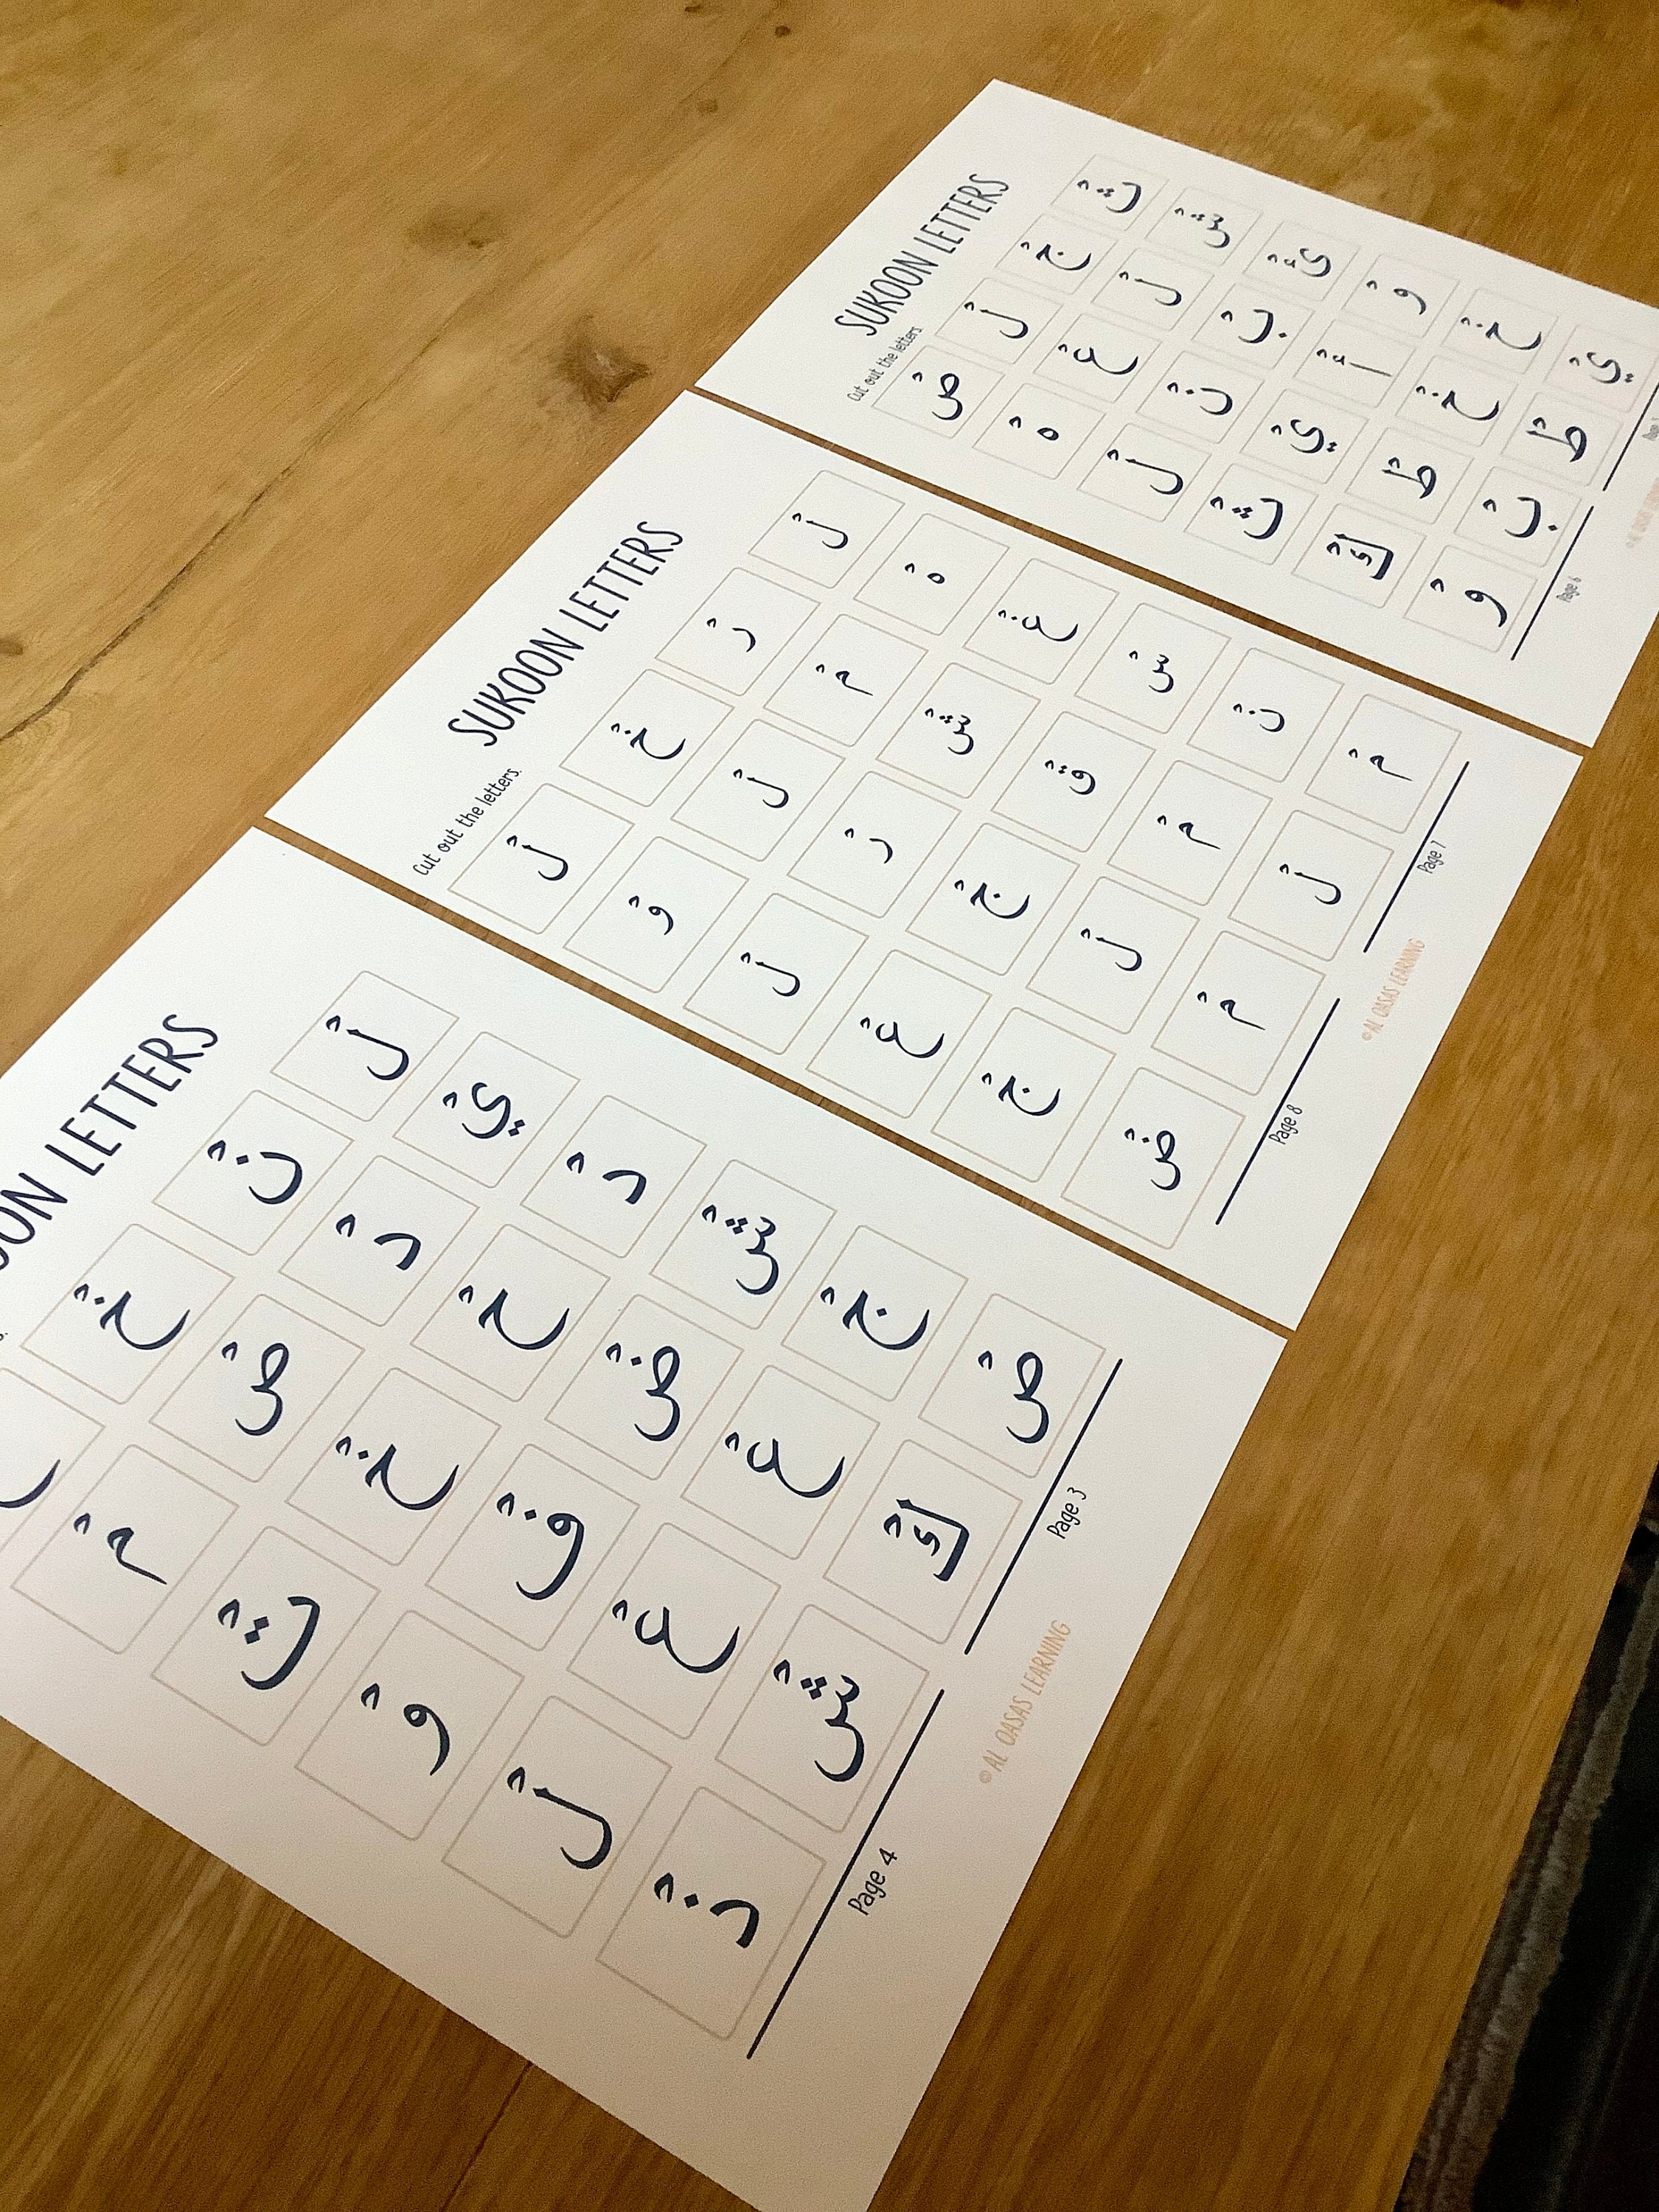 SUKOON LETTERS
Cut out the letters.
تْ حْ لْ صْ
شْ لْ عْ هْ
ئْ بْ نْ لْ
وْ أْ يْ ثْ
خْ خْ طْ كْ
يْ طْ بْ وْ
Page 6
SUKOON LETTERS
Cut out the letters.
لْ رْ خْ لْ
هْ مْ لْ وْ
غْ شْ رْ لْ
سْ قْ جْ عْ
نْ مْ لْ جْ
مْ لْ مْ ضْ
Page 8 Page 7
© AL QASAS LEARNING
LETTERS
لْ نْ خْ
يْ رْ صْ مْ
رْ حْ خْ تْ
شْ ضْ فْ وْ
جْ عْ عْ لْ
صْ كْ شْ زْ
Page 4 Page 3
© AL QASAS LEARNING